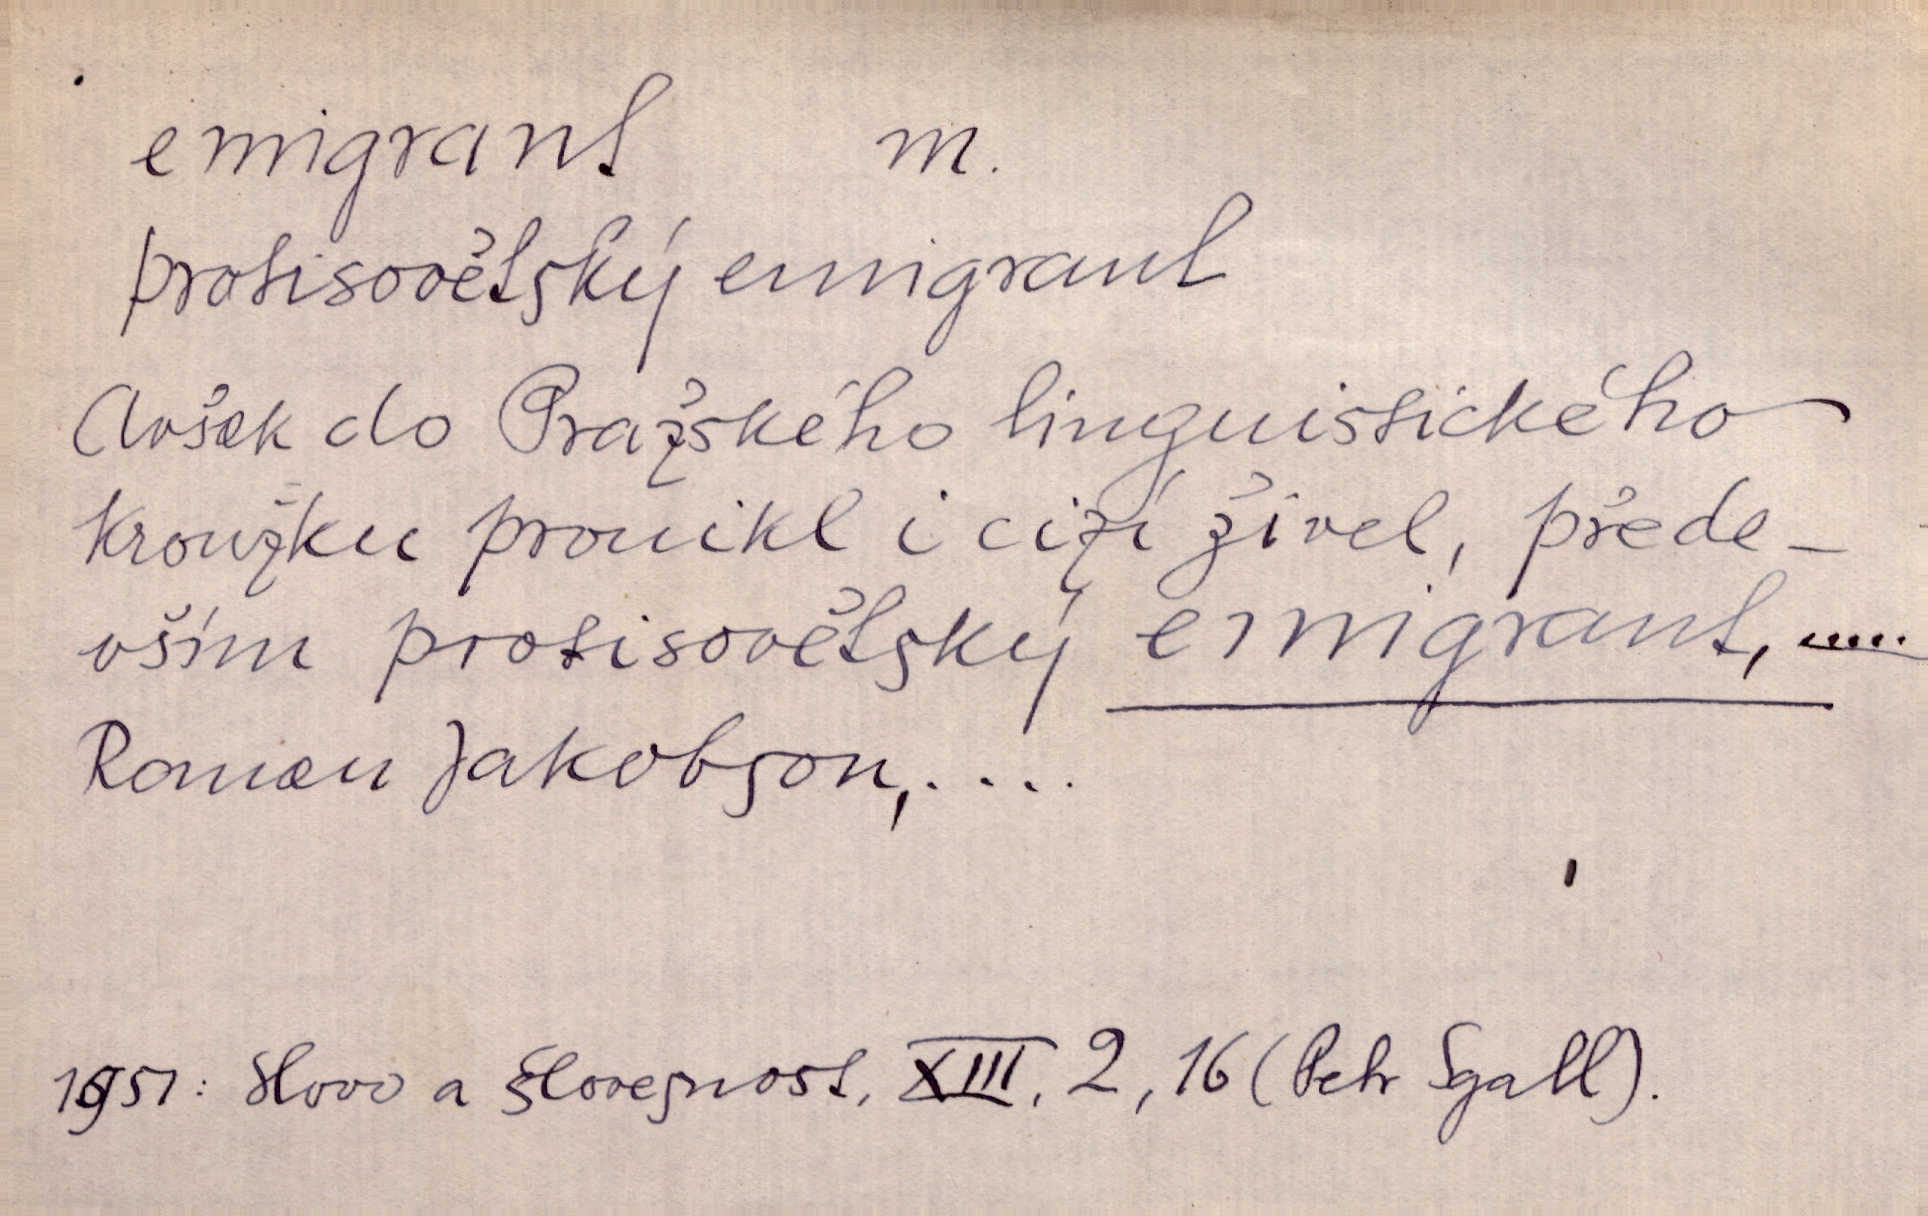 emigrant m.
protisovětský emigrant
Avšak do Pražského linguistického
kroužku pronikl i cizí živel, přede-
vším protisovětský emigrant, .....
Roman Jakobson, ....
1951: Slovo a slovesnost, XIII, 2, 16 (Petr Sgall).